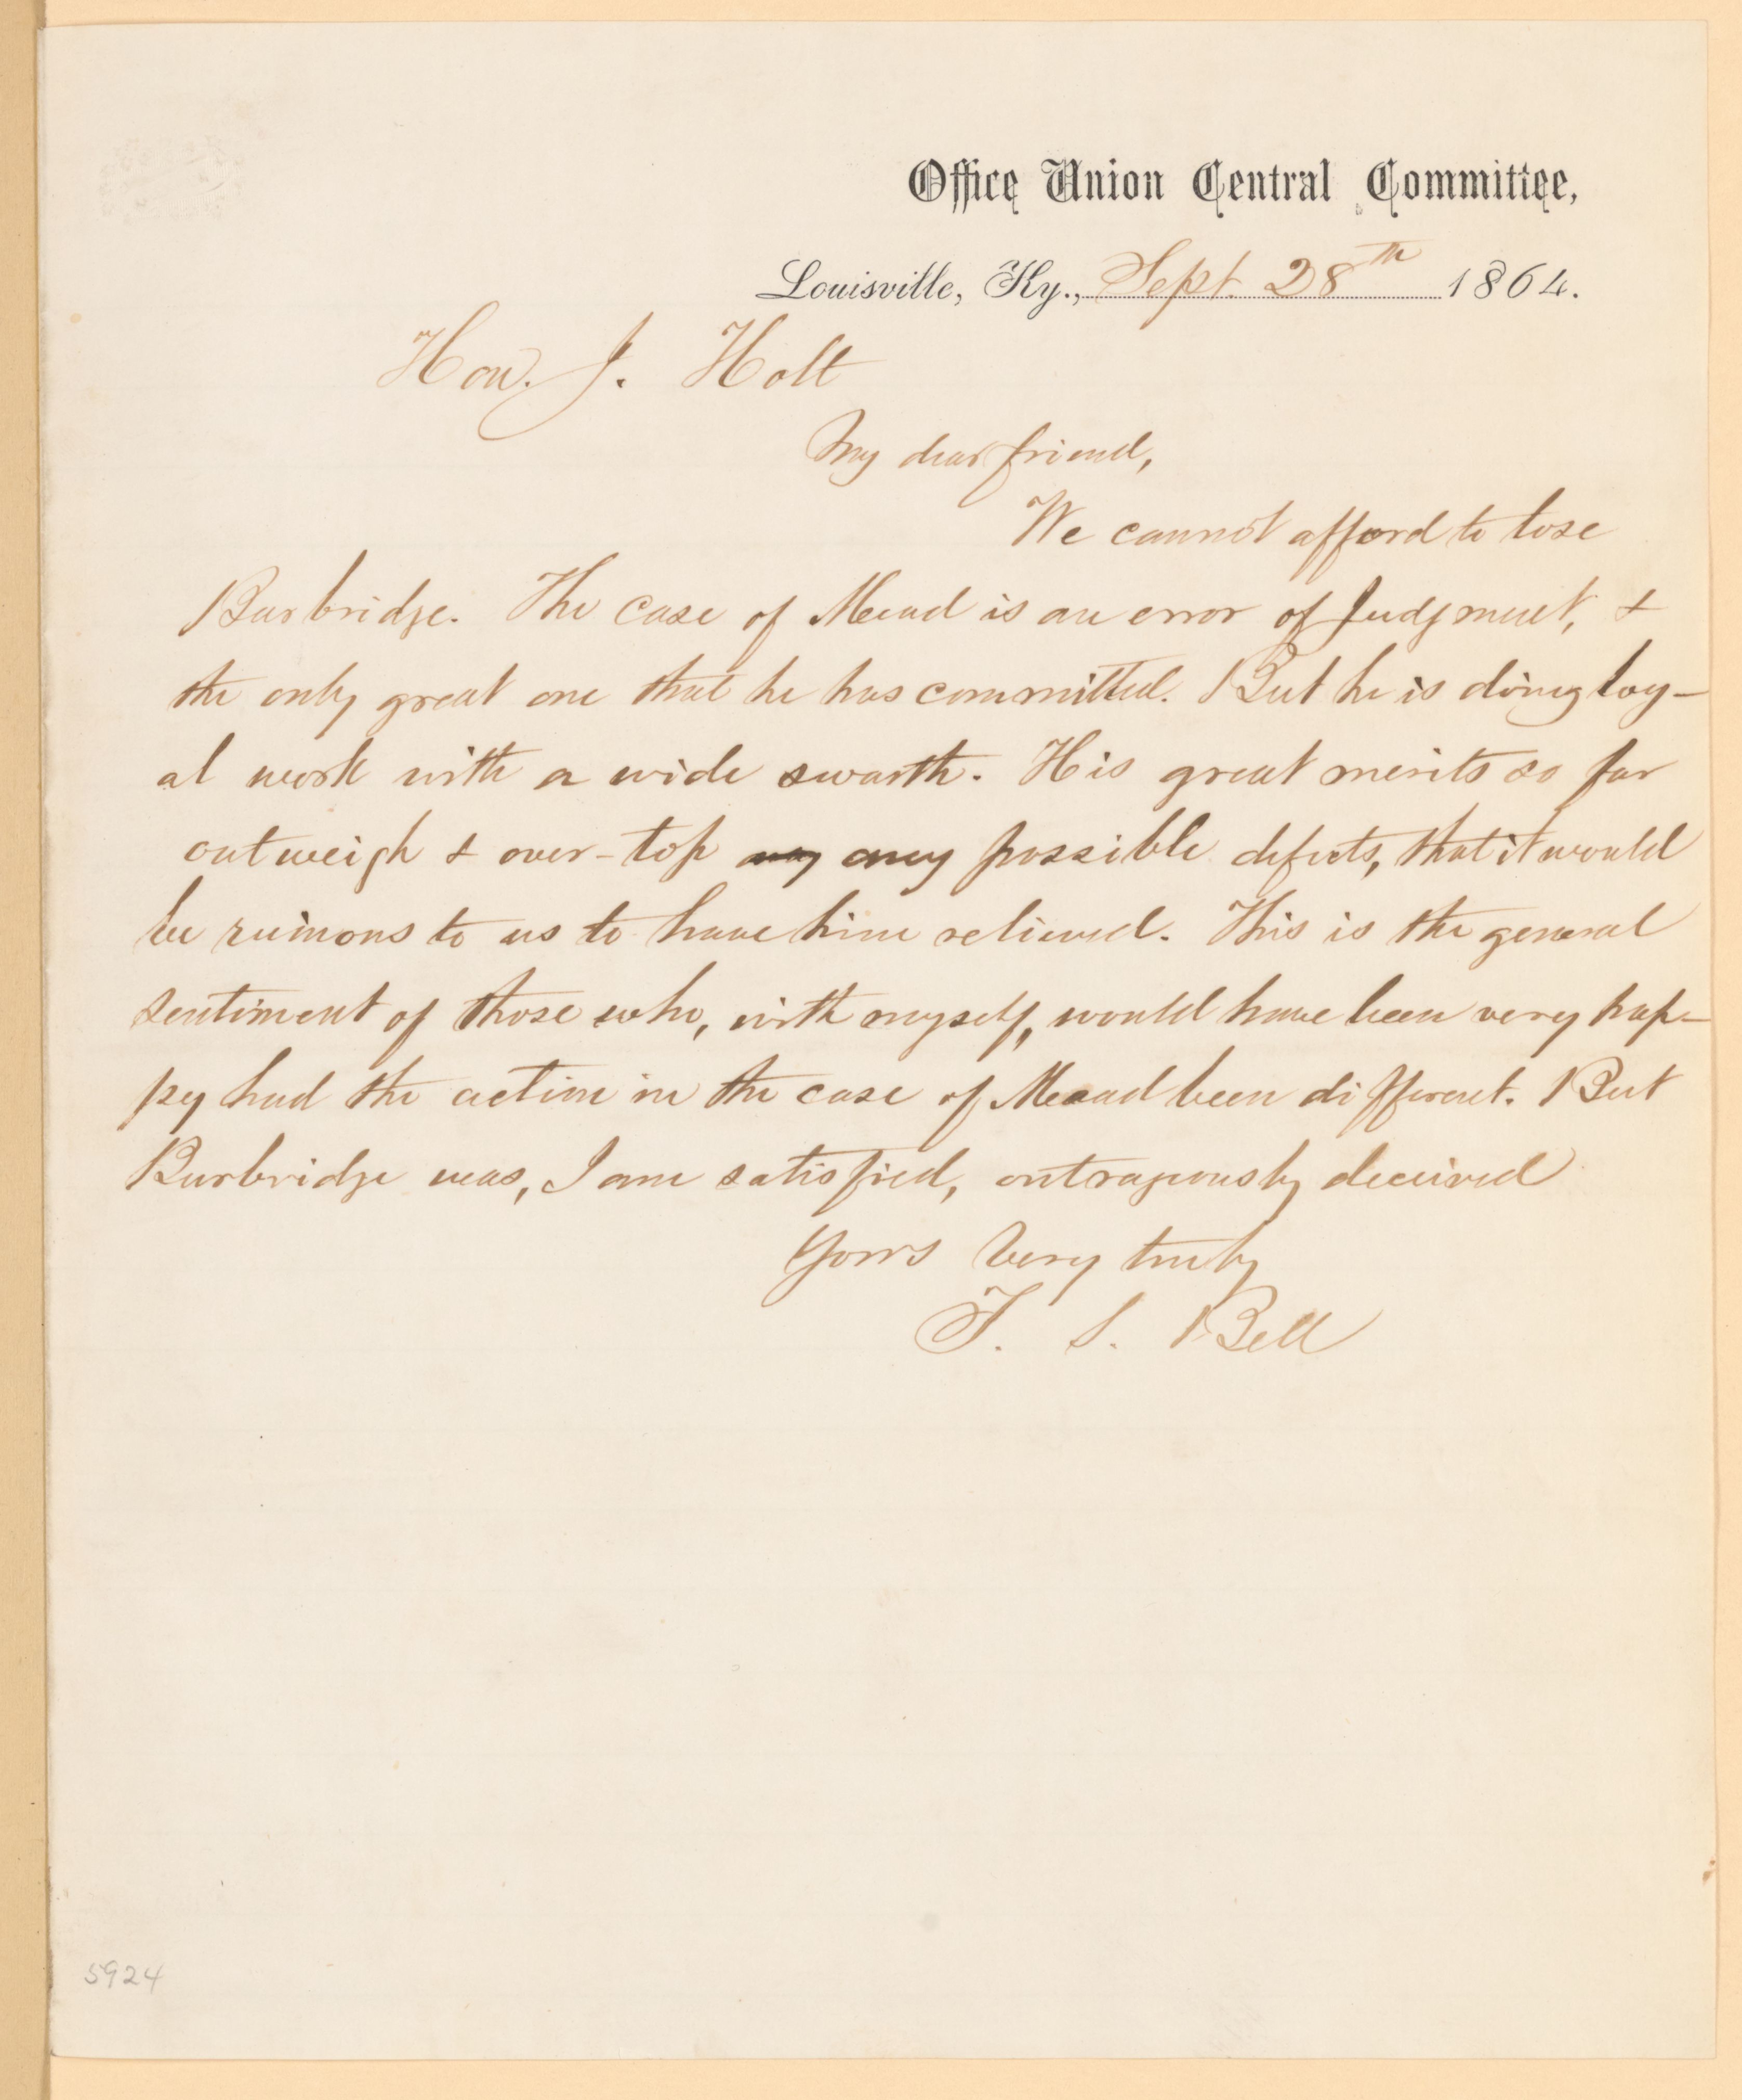 Office Union Central Committee,
Louisville, Ky., Sept. 28th 1864.
Hon. J. Holt
My dear friend,
We cannot afford to lose
Burbridge. The case of Mead is an error of Judgment, &
the only great one that he has committed. But he is doing loy-
al work with a wide swarth. His great merits so far
outweigh & over-top any any possible defects, that it would
be ruinous to us to have him relieved. This is the general
sentiment of those who, with myself, would have been very hap-
py had the action in the case of Mead been different. But
Burbridge was, I am satisfied, outrageously deceived
Yours Very truly
T. S. Bell
5924